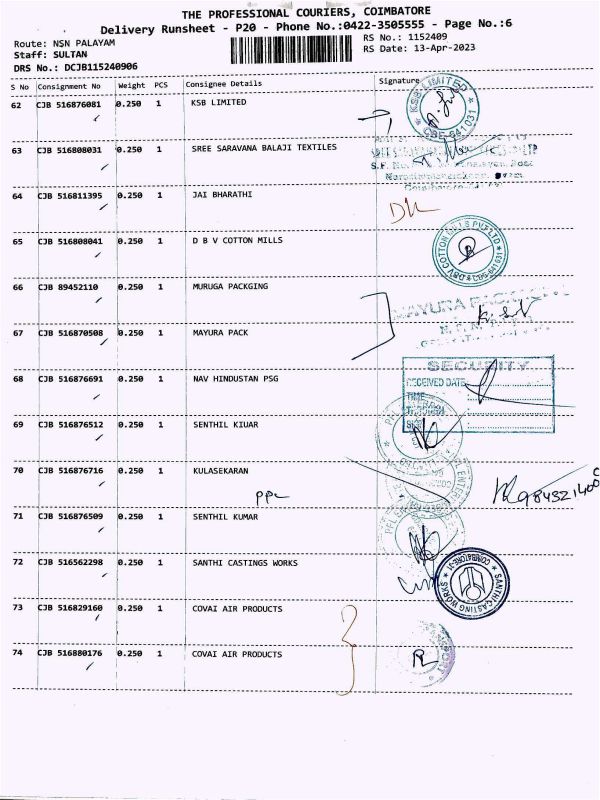 THE PROFESSIONAL COURIERS, COIMBATORE
Delivery Runsheet - P20 - Phone No.:0422-3505555 - Page No.:6
Route: NSN PALAYAM RS No.: 1152409
Staff: SULTAN RS Date: 13-Apr-2023
DRS No.: DCJB115240906
S No Consignment No Weight PCS Consignee Details Signature
62 CJB 516876081 0.250 1 KSB LIMITED
KSB LIMITED
CBE-641 031
63 CJB 516808031 0.250 1 SREE SARAVANA BALAJI TEXTILES
64 CJB 516811395 0.250 1 JAI BHARATHI
65 CJB 516808041 0.250 1 D B V COTTON MILLS
DBV COTTON MILLS PVT LTD
CBE-641031
66 CJB 89452110 0.250 1 MURUGA PACKGING
MAYURA
67 CJB 516870508 0.250 1 MAYURA PACK
SECURITY
68 CJB 516876691 0.250 1 NAV HINDUSTAN PSG
RECEIVED DATE
TIME
69 CJB 516876512 0.250 1 SENTHIL KIUAR
70 CJB 516876716 0.250 1 KULASEKARAN
71 CJB 516876509 0.250 1 SENTHIL KUMAR
72 CJB 516562298 0.250 1 SANTHI CASTINGS WORKS
SANTHI CASTING WORKS
COIMBATORE-31
73 CJB 516829160 0.250 1 COVAI AIR PRODUCTS
74 CJB 516880176 0.250 1 COVAI AIR PRODUCTS